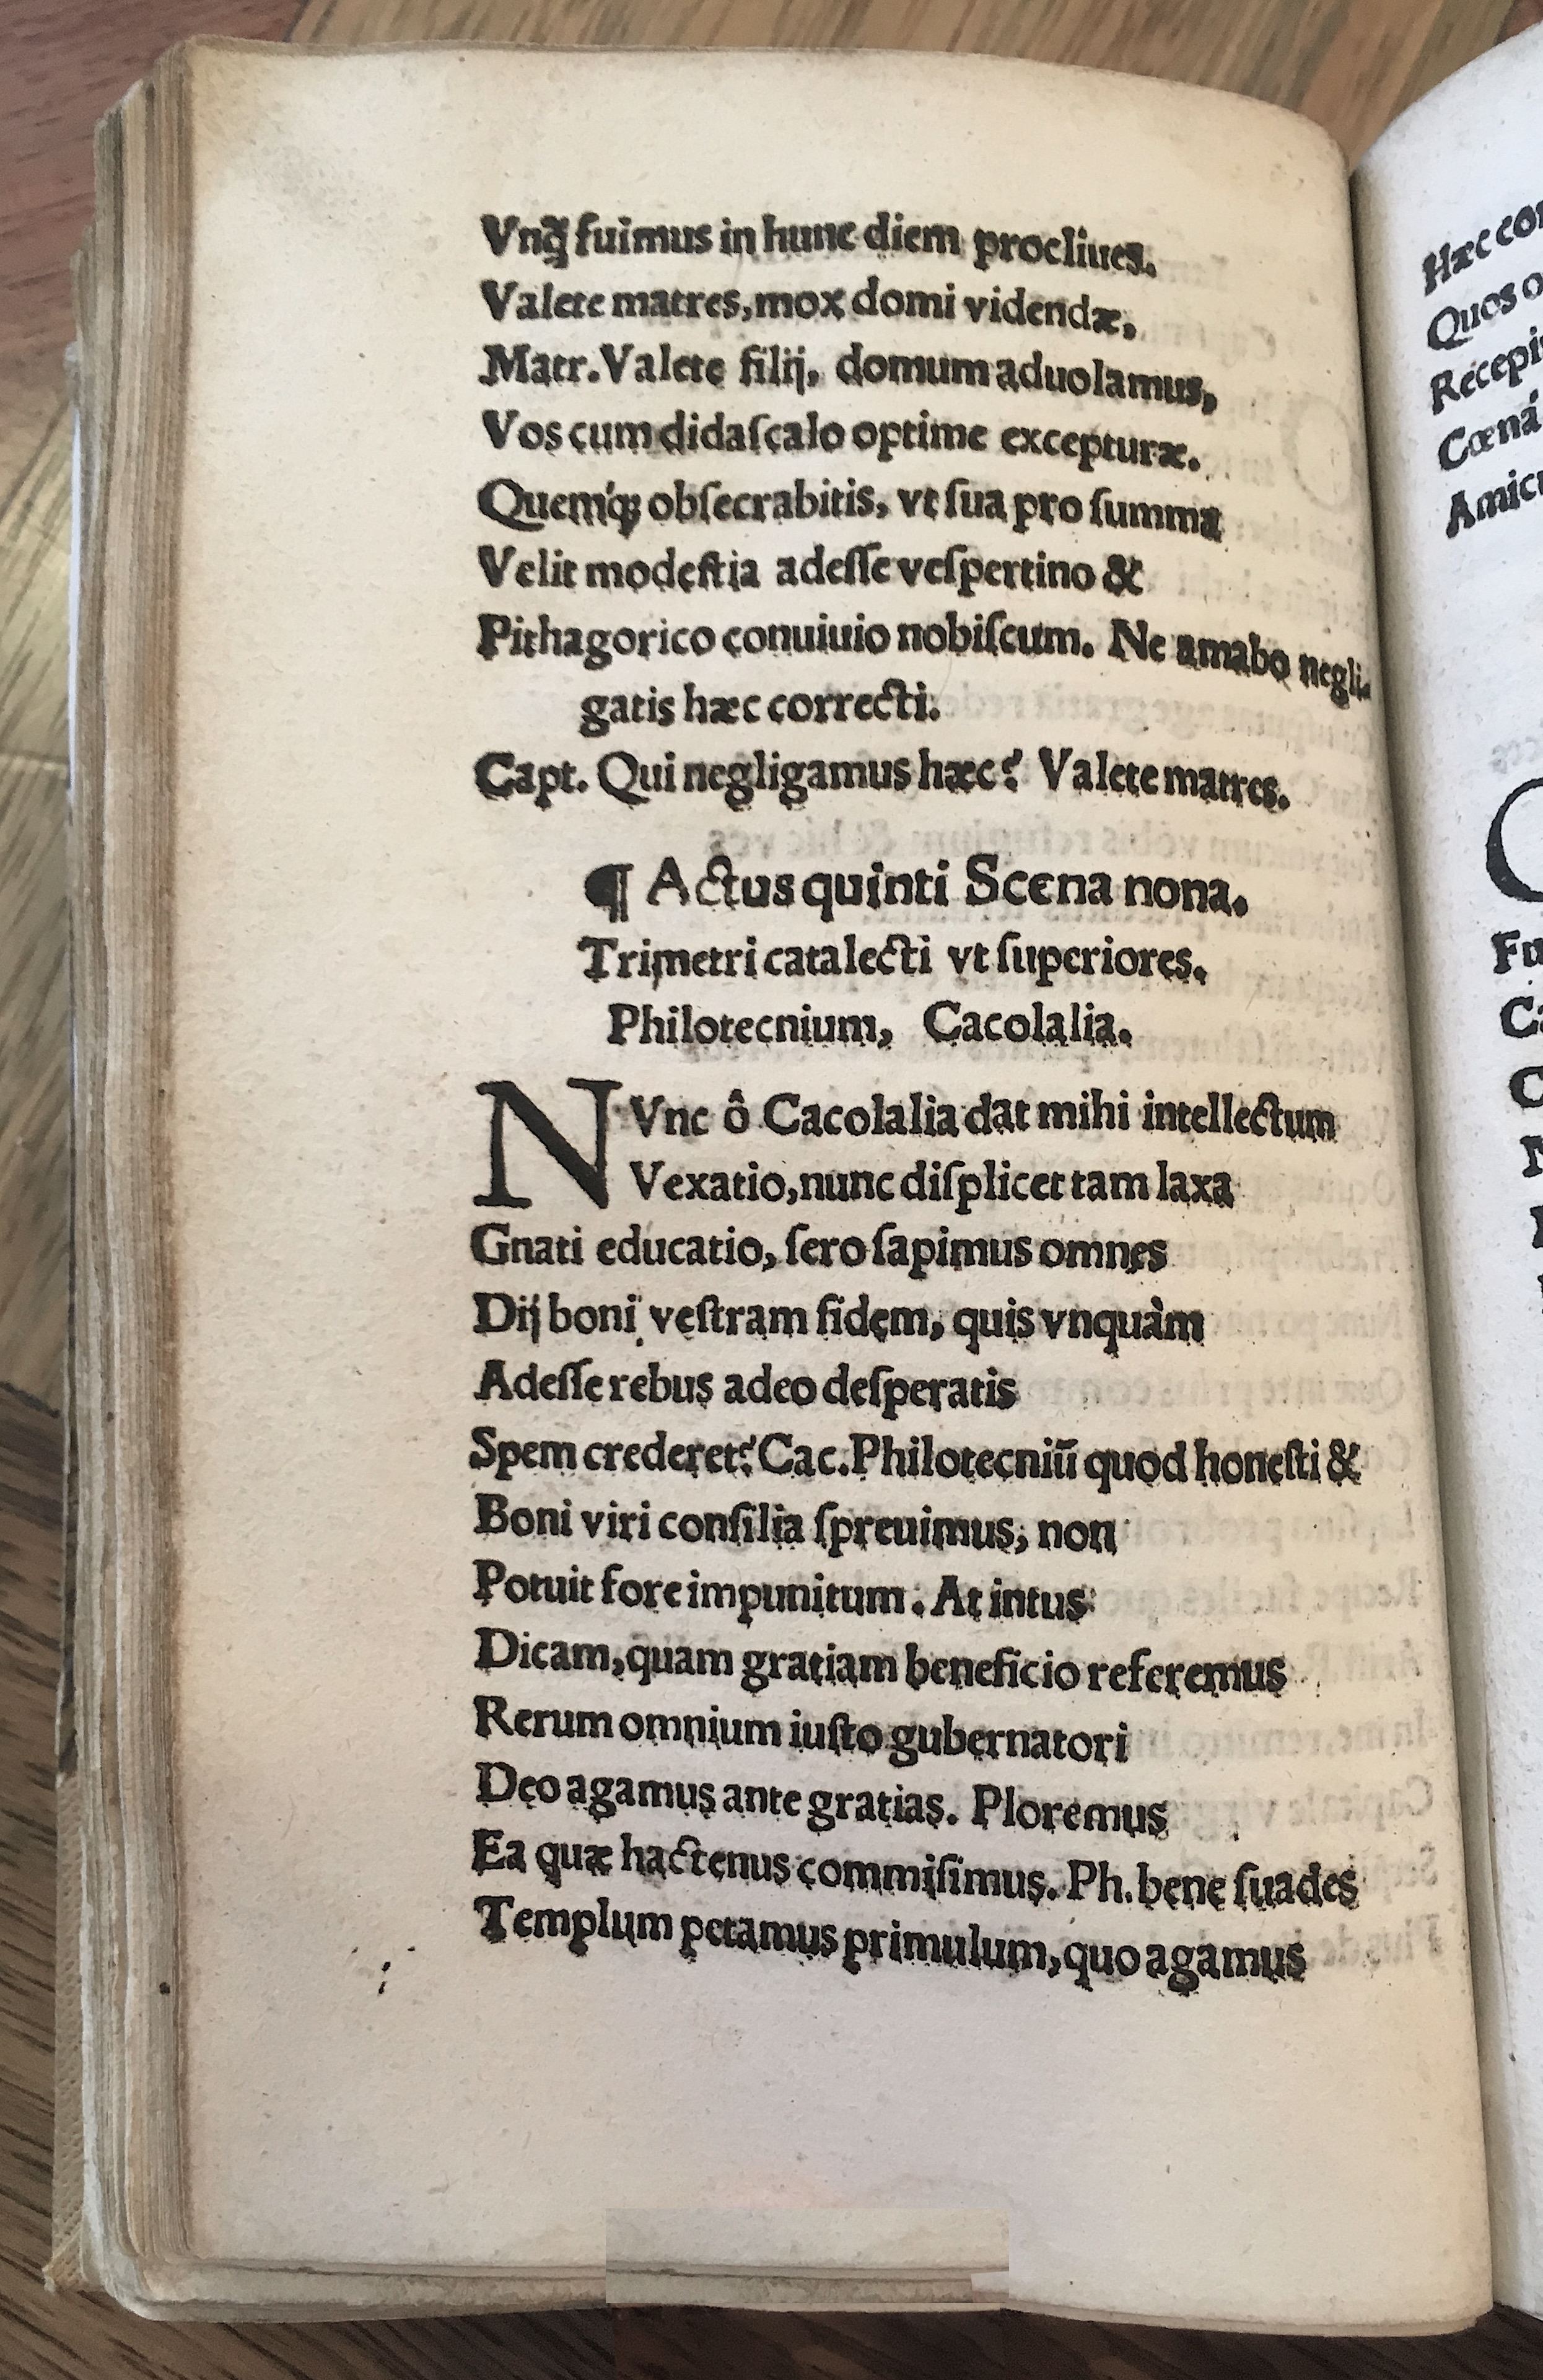 Vnq̃ fuimus in hunc diem procliues.
Valete matres, mox domi videndæ.
Matr. Valete filij, domum aduolamus,
Vos cum didaſcalo optime excepturæ.
Quemq́; obſecrabitis, vt ſua pro ſumma
Velit modeſtia adeſſe veſpertino &
Pithagorico conuiuio nobiſcum. Ne amabo negli-
gatis hæc correcti.
Capt. Qui negligamus hæc? Valete matres.
¶ Actus quinti Scena nona.
Trimetri catalecti vt ſuperiores.
Philotecnium, Cacolalia.
NVnc ô Cacolalia dat mihi intellectum
Vexatio, nunc diſplicet tam laxa
Gnati educatio, ſero ſapimus omnes
Dij boni veſtram fidem, quis vnquàm
Adeſſe rebus adeo deſperatis
Spem crederet? Cac. Philotecniũ quod honeſti &
Boni viri conſilia ſpreuimus, non
Potuit fore impunitum. At intus
Dicam, quam gratiam beneficio referemus
Rerum omnium iuſto gubernatori
Deo agamus ante gratias. Ploremus
Ea quæ hactenus commiſimus. Ph. bene ſuades
Templum petamus primulum, quo agamus
Hæc
Quos
Cœná